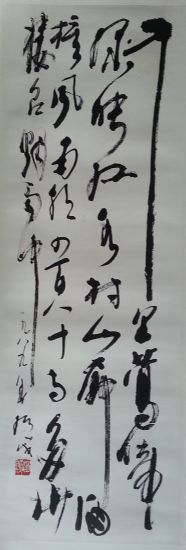 千里莺啼
绿映红水村山郭酒
旗风南朝四百八十寺多少
楼台烟雨中
一九八